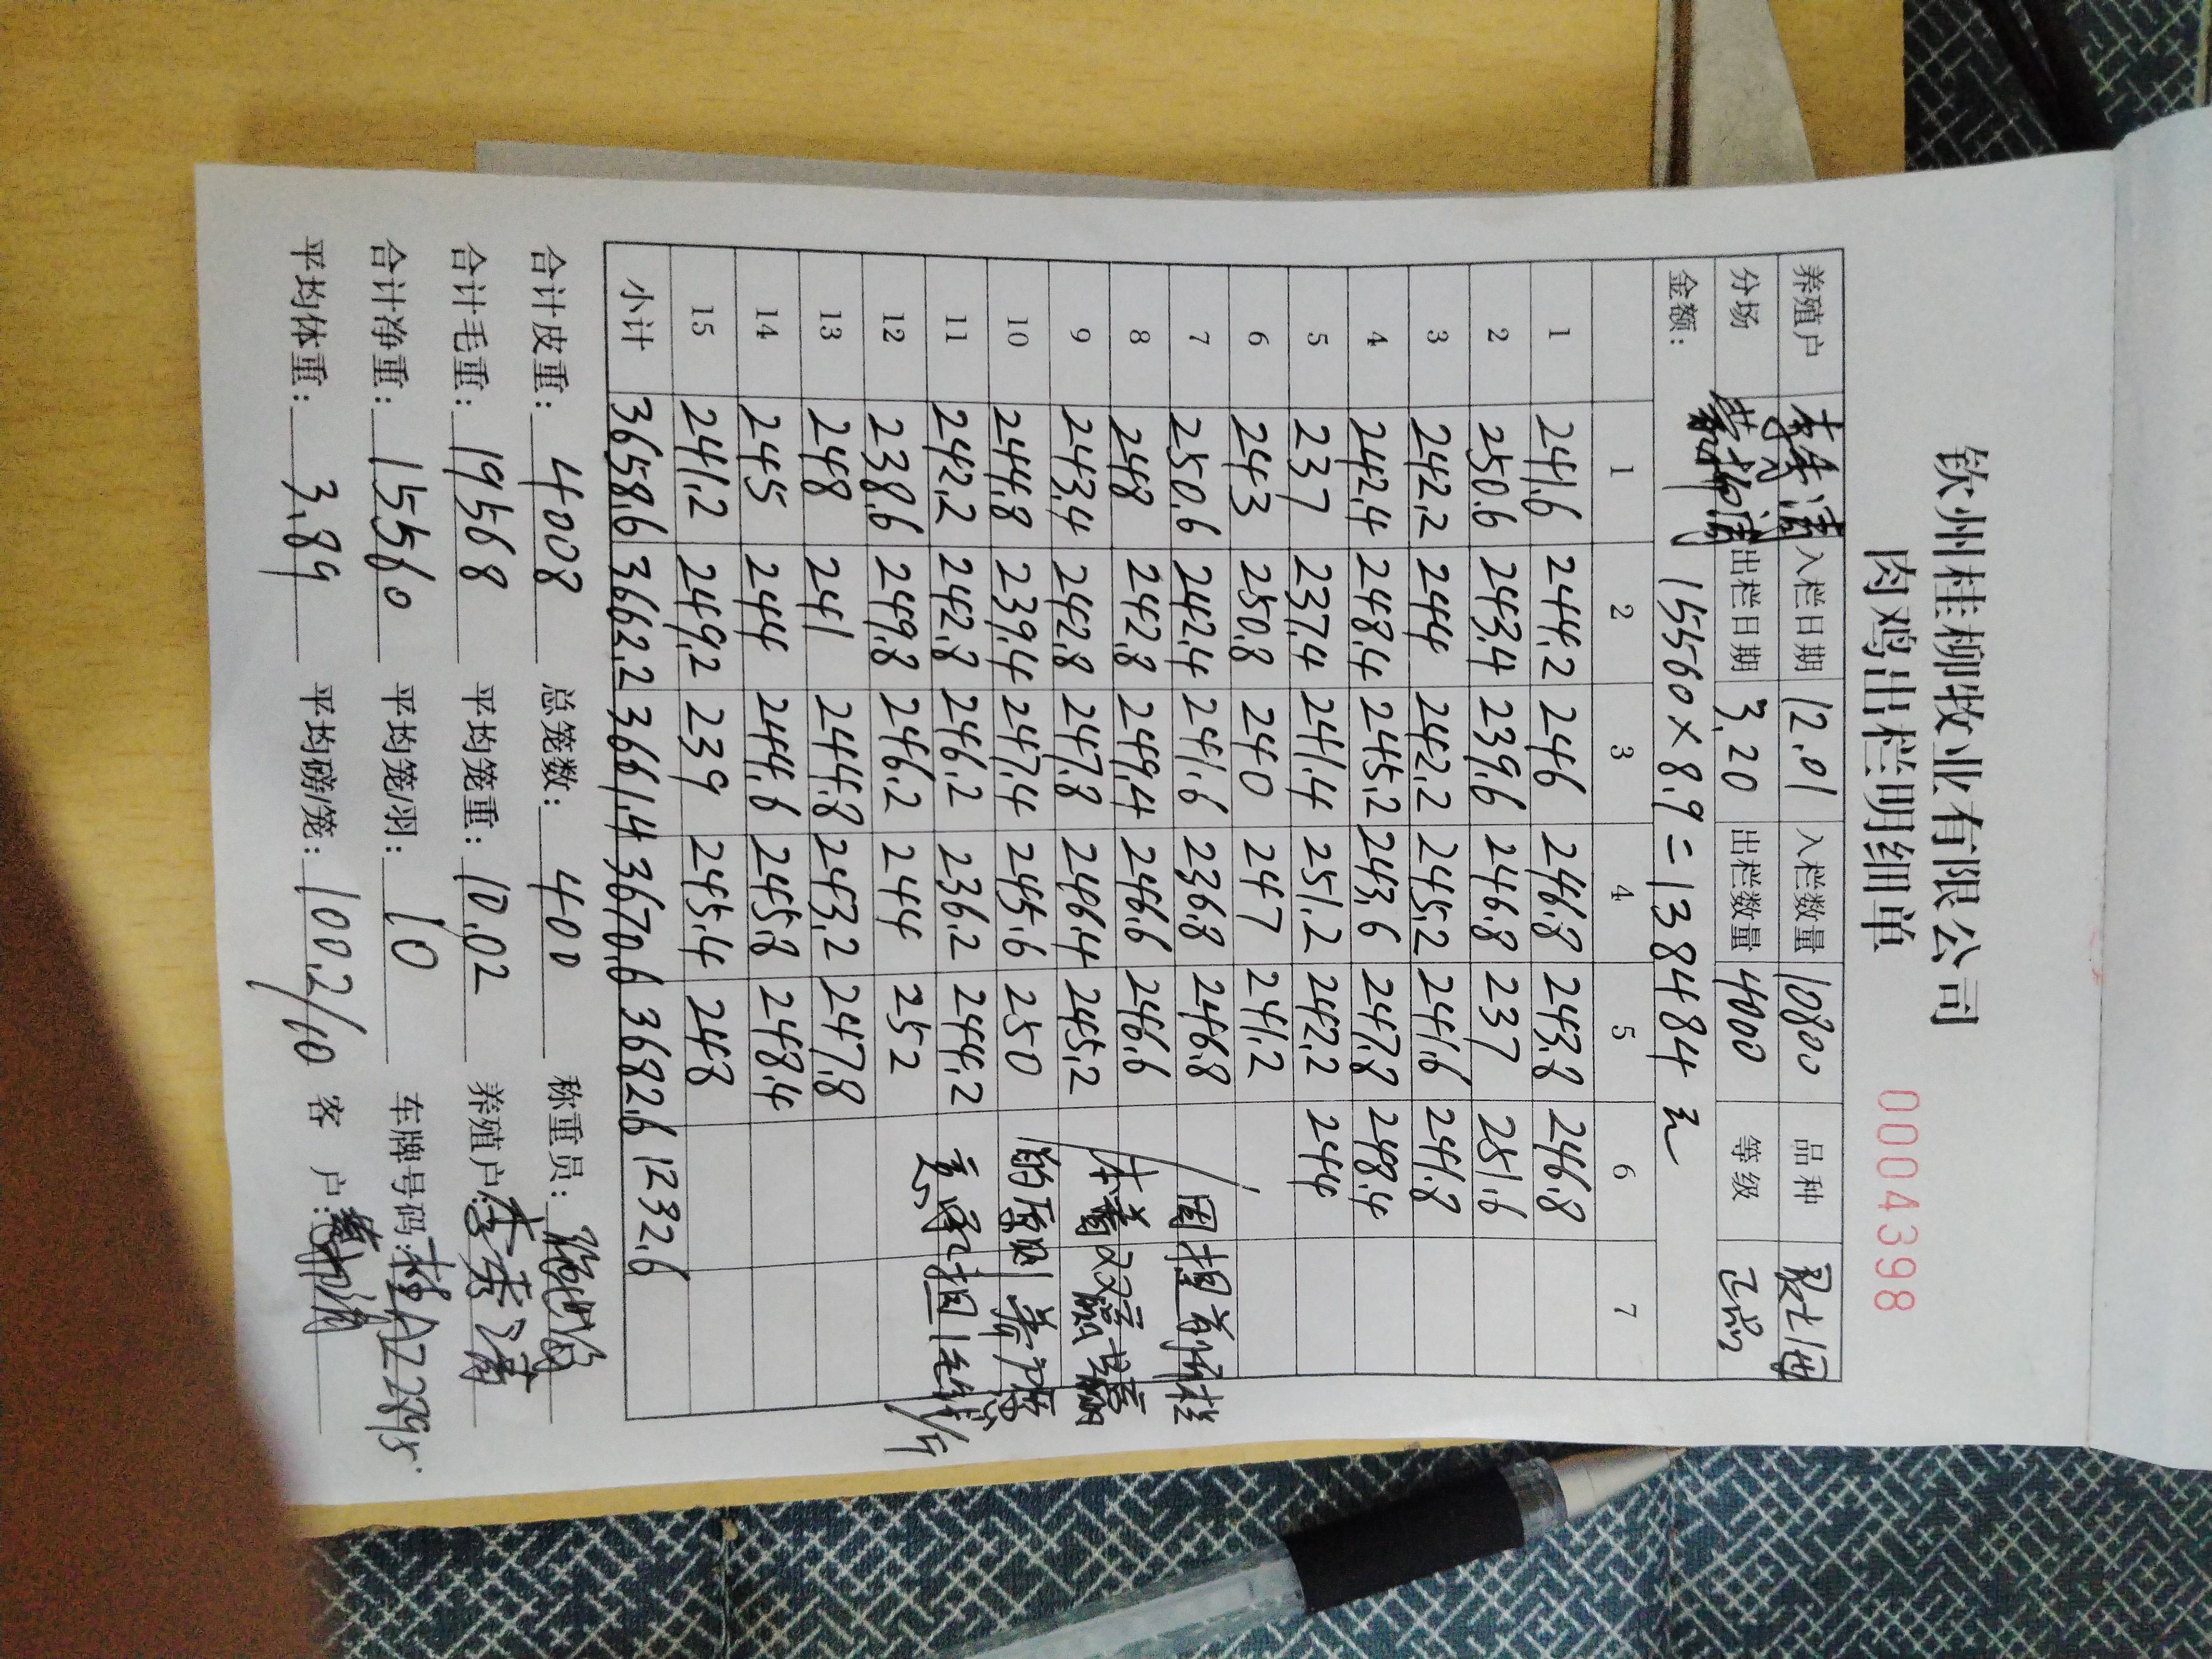 钦州桂柳牧业有限公司
肉鸡出栏明细单 0004398
养殖户 李秀清 入栏日期 12.01 入栏数量 10800 品种
分场 出栏日期 3.20 出栏数量 4000 等级
金额: 15560×8.9=138484元
1 2 3 4 5 6 7
1 241.6 244.2 246 246.8 243.8 246.8
2 250.6 243.4 239.6 246.8 237 251.6
3 242.2 244 242.2 245.2 241.6 241.8
4 242.4 248.4 245.2 243.6 247.8 248.4
5 237 237.4 241.4 251.2 242.2 244
6 243 250.8 240 247 241.2
7 250.6 242.4 241.6 236.8 246.8
8 248 242.8 249.4 246.6 246.6
9 243.4 242.8 247.8 246.4 245.2
10 244.8 239.4 247.4 245.6 250 的原则
11 242.2 242.8 246.2 236.2 244.2
12 238.6 249.8 246.2 244 252
13 248 241 244.8 243.2 247.8
14 245 244 244.6 245.8 248.4
15 241.2 249.2 239 245.4 248
小计 3658.6 3662.2 3661.4 3670.6 3682.6 1232.6
合计皮重: 4008 总笼数: 400 称重员:
合计毛重: 19568 平均笼重: 10.02 养殖户: 李秀清
合计净重: 15560 平均笼/羽: 10 车牌号码:
平均体重: 3.89 平均磅/笼: 100.2/10 客户: